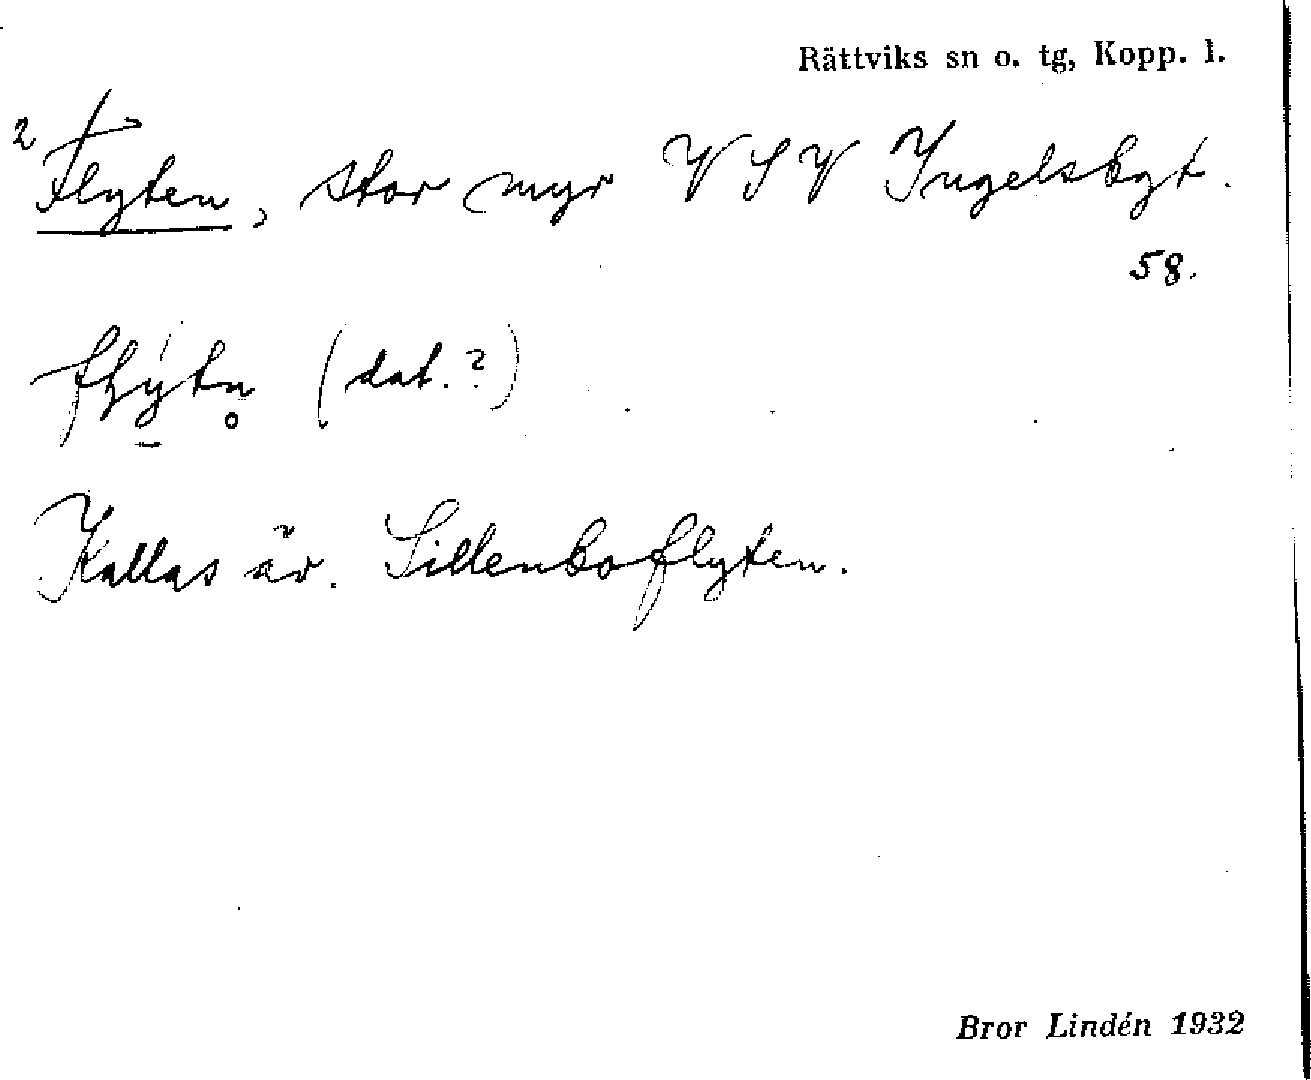 Rättviks sn o. tg, Kopp. l.
2 Flyten, stor myr VSV Ingelsbgt.
58.
(dat.?)
Kallas äv. Sillenboflyten.
Bror Lindén 1932